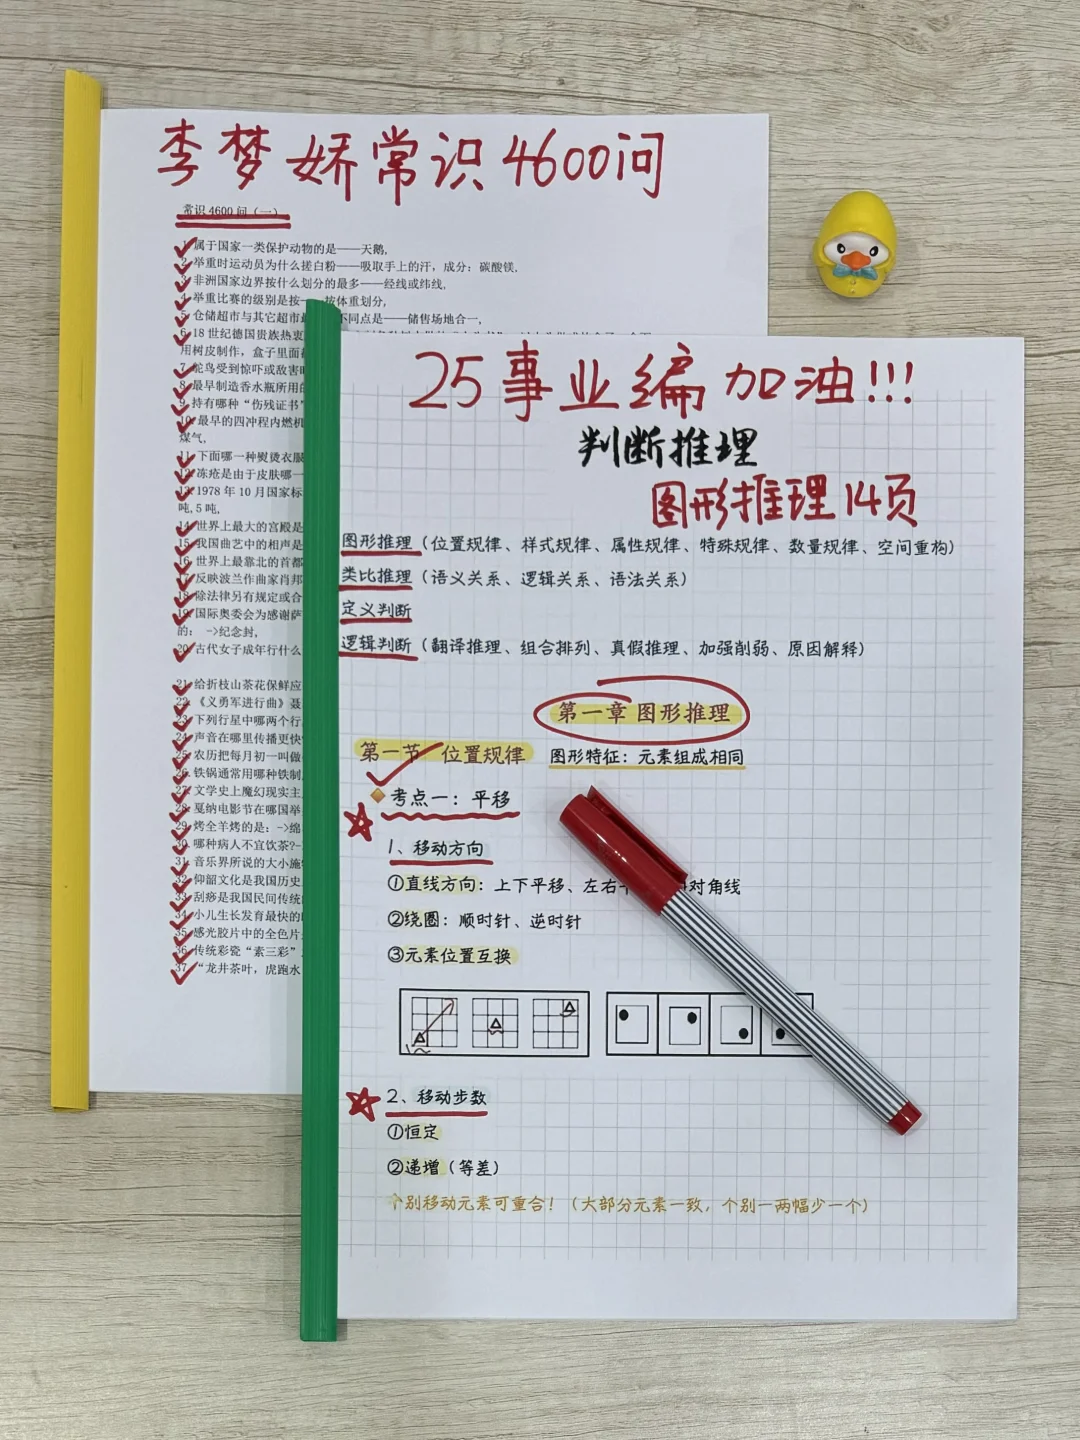 李梦娇常识4600问
常识4600问（一）
1.属于国家一类保护动物的是——天鹅,
2.举重时运动员为什么搓白粉——吸取手上的汗，成分：碳酸镁,
3.非洲国家边界按什么划分的最多——经线或纬线,
4.举重比赛的级别是按——按体重划分,
5.仓储超市与其它超市 不同点是——储售场地合一,
6.18世纪德国贵族热衷
用树皮制作，盒子里面
7.鸵鸟受到惊吓或敌害
8.最早制造香水瓶所用的
9.持有哪种“伤残证书”
10.最早的四冲程内燃机
煤气,
11.下面哪一种熨烫衣服
12.冻疮是由于皮肤哪一
13.1978年10月国家标
吨,5吨,
14.世界上最大的宫殿是
15.我国曲艺中的相声是
16.世界上最靠北的首都
17.反映波兰作曲家肖邦
18.除法律另有规定或合
19.国际奥委会为感谢萨
的： ->纪念封,
20.古代女子成年行什么
21.给折枝山茶花保鲜应
22.《义勇军进行曲》聂
23.下列行星中哪两个行
24.声音在哪里传播更快
25.农历把每月初一叫做
26.铁锅通常用哪种铁制
27.文学史上魔幻现实主
28.戛纳电影节在哪国举
29.烤全羊烤的是：->绵
30.哪种病人不宜饮茶?-
31.音乐界所说的大小施
32.仰韶文化是我国历史
33.刮痧是我国民间传统
34.小儿生长发育最快的
35.感光胶片中的全色片
36.传统彩瓷“素三彩”
37.“龙井茶叶，虎跑水
25事业编加油!!!
判断推理
图形推理14页
图形推理（位置规律、样式规律、属性规律、特殊规律、数量规律、空间重构）
类比推理（语义关系、逻辑关系、语法关系）
定义判断
逻辑判断（翻译推理、组合排列、真假推理、加强削弱、原因解释）
第一章 图形推理
第一节 位置规律 图形特征：元素组成相同
考点一：平移
1、移动方向
①直线方向：上下平移、左右 对角线
②绕圈：顺时针、逆时针
③元素位置互换
2、移动步数
①恒定
②递增（等差）
个别移动元素可重合！（大部分元素一致，个别一两幅少一个）